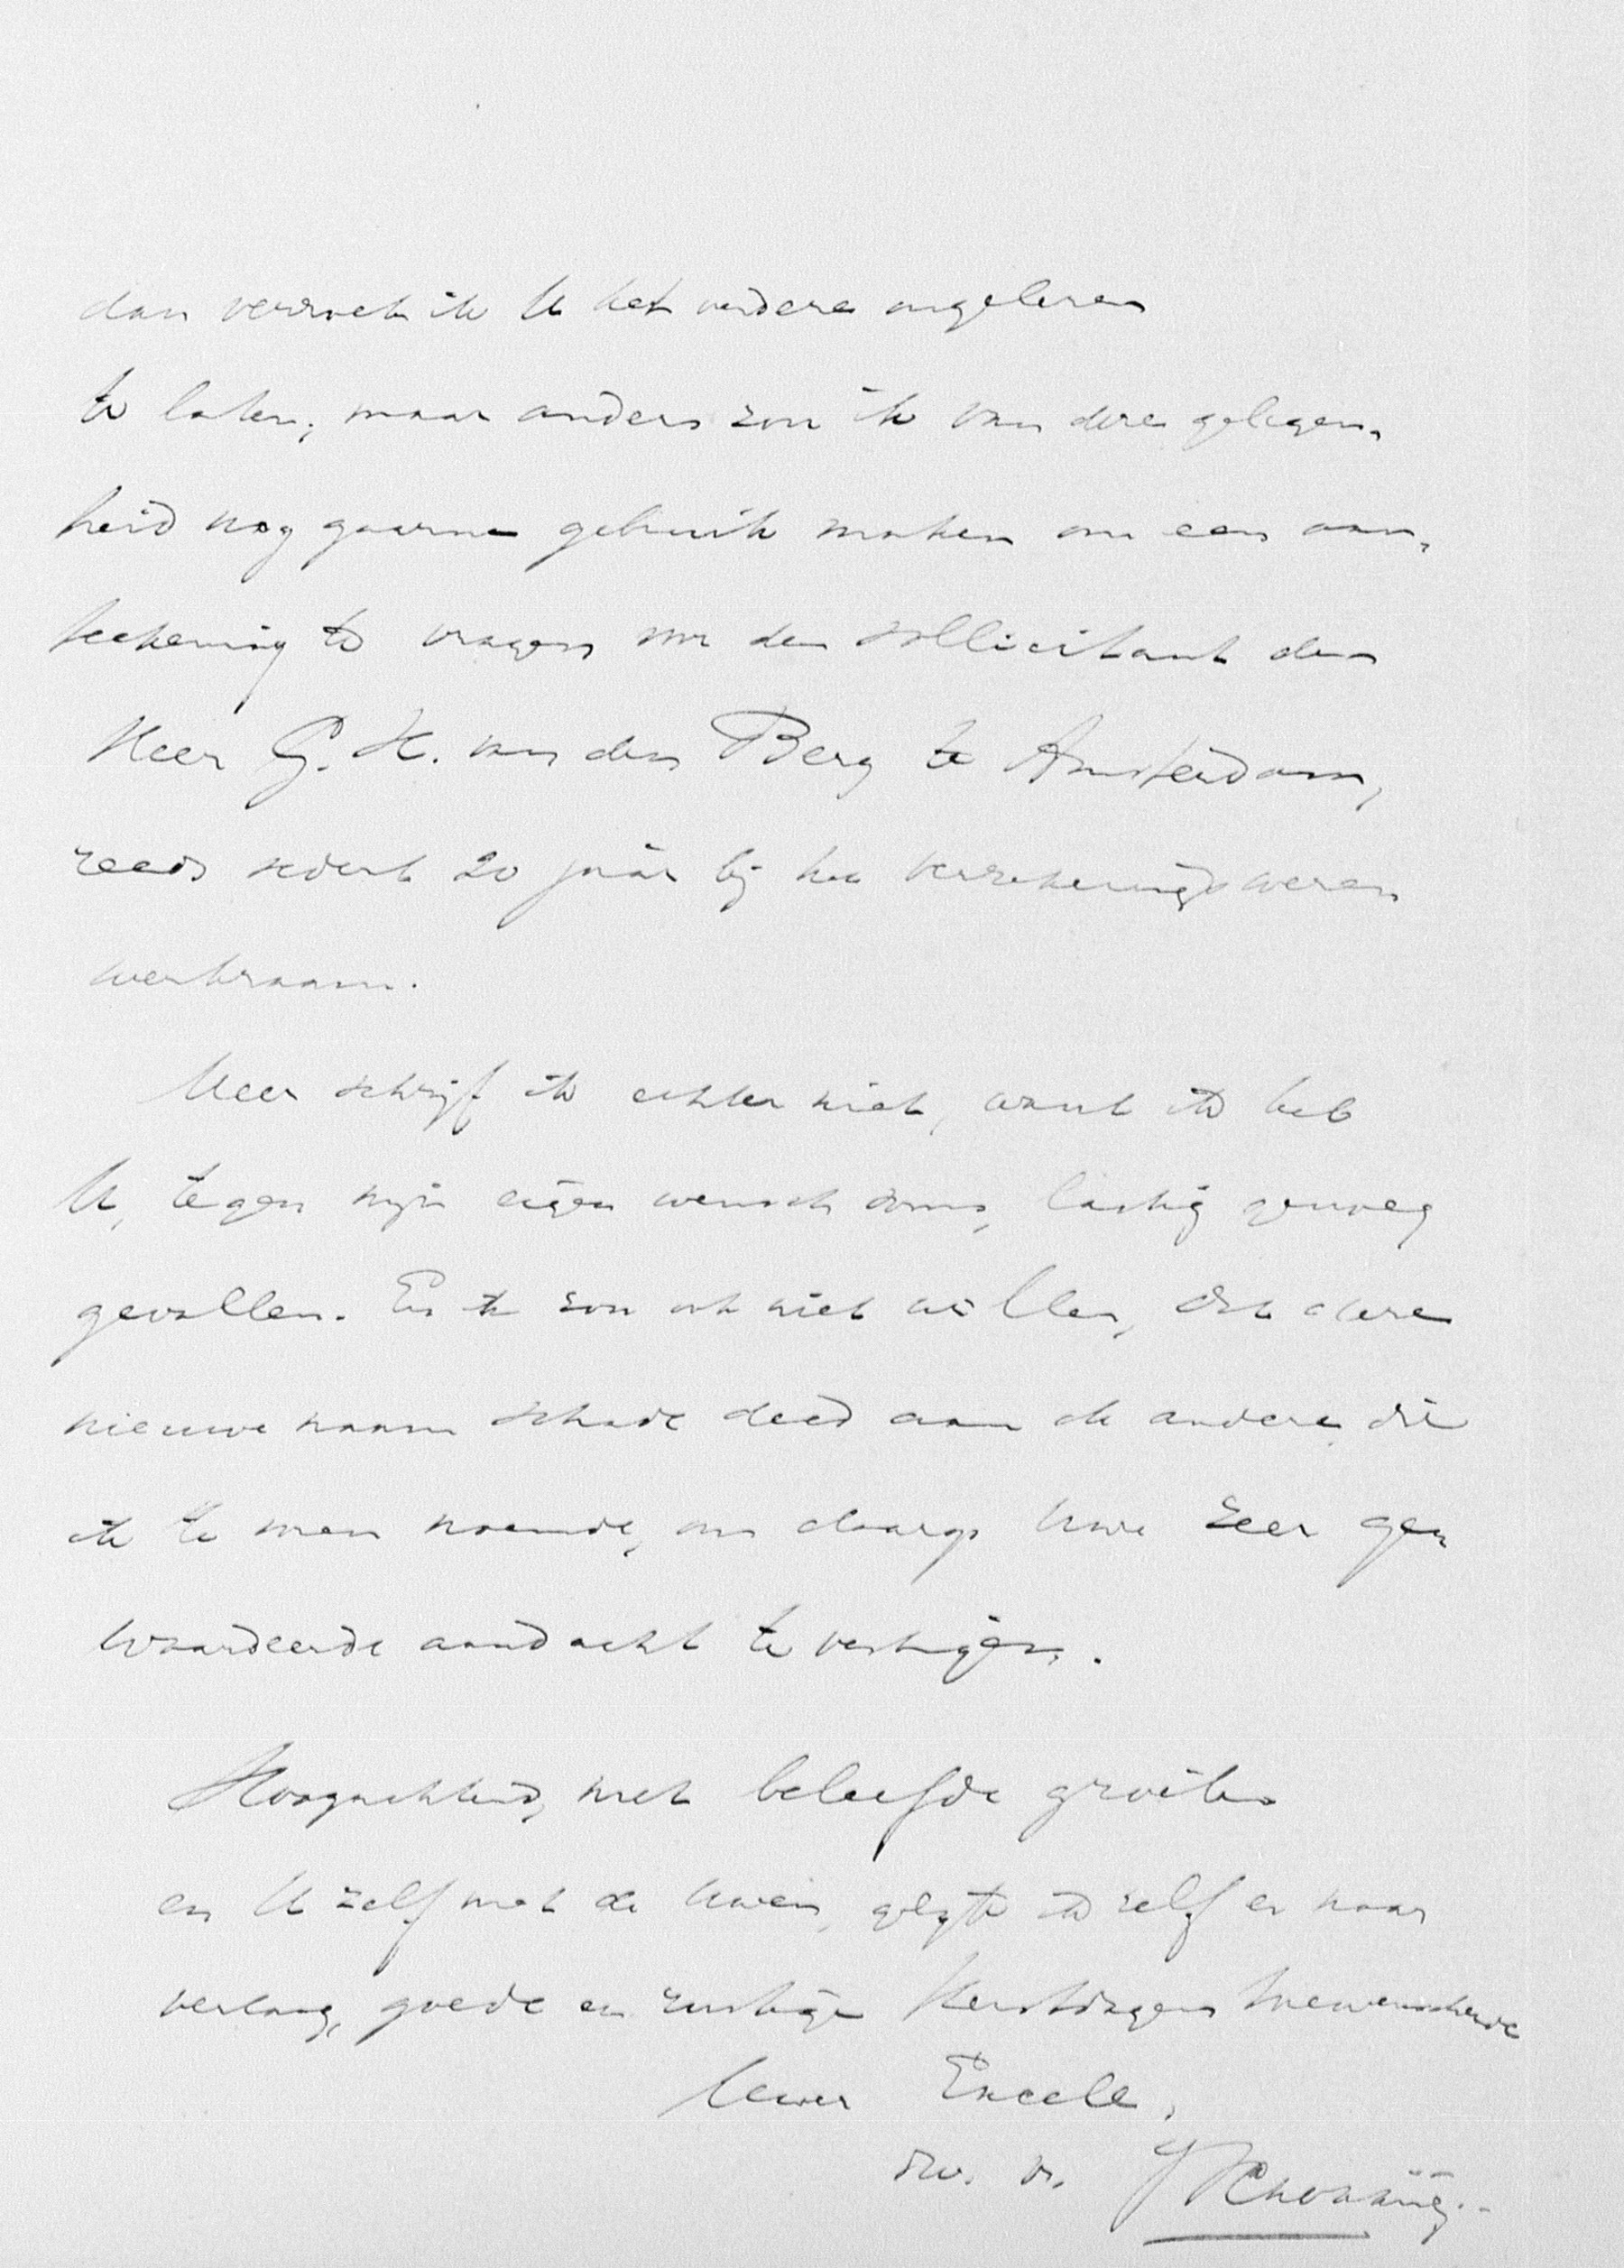 dan verzoek ik U het verdere ongelezen
te laten; maar anders zou ik van deze gelegen-
heid nog gaarne gebruik maken om een aan-
teekening te vragen voor den sollicitant den
Heer G. H. van den Berg te Amsterdam,
reeds sedert 20 jaar bij het verzekeringswezen
werkzaam.
Meer schrijf ik echter niet, want ik heb
U, tegen mijn eigen wensch soms, lastig genoeg
gevallen. En ik zou ook niet willen, dat deze
nieuwe naam schade deed aan de andere die
ik te men noemde, om daarop Uwe zeer ge-
waardeerde aandacht te vestigen.
Hoogachtend, met beleefde groeten
en U zelf met de Uwen, gelijk ik zelf er naar
verlang, goede en rustige Kerstdagen toewenschende
Uwer Excell.
dw. dr.